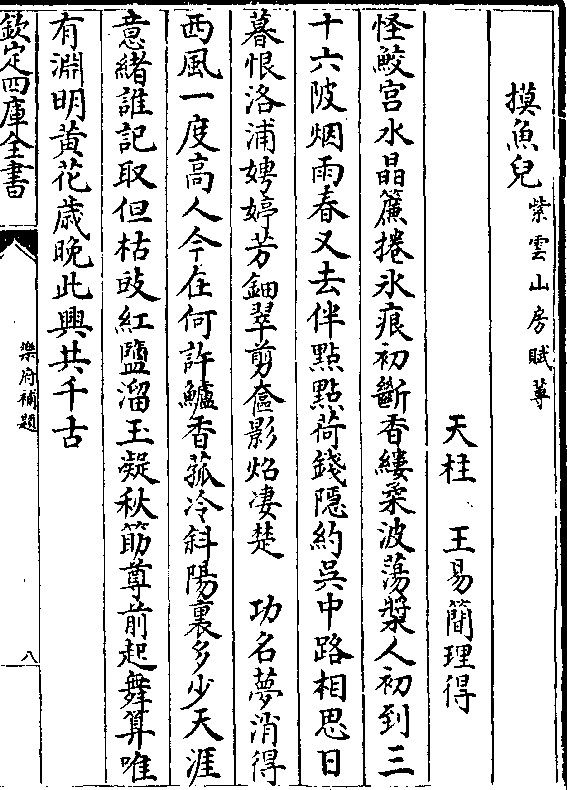 摸魚兒紫雲山房賦蓴
天柱 王易簡理得
怪鮫宫水晶簾捲氷痕初斷香縷柔波蕩槳人初到三
十六陂烟雨春又去伴點點荷錢隠約吳中路相思日
暮恨洛浦娉婷芳鈿翠剪奩影炤凄楚 功名夢消得
西風一度高人今在何許鱸香菰冷斜陽裏多少天涯
意緒誰記取但枯豉紅鹽溜玉凝秋筯尊前起舞算唯
有淵明黄花歳晚此興共千古
欽定四庫全書
樂府補題
八